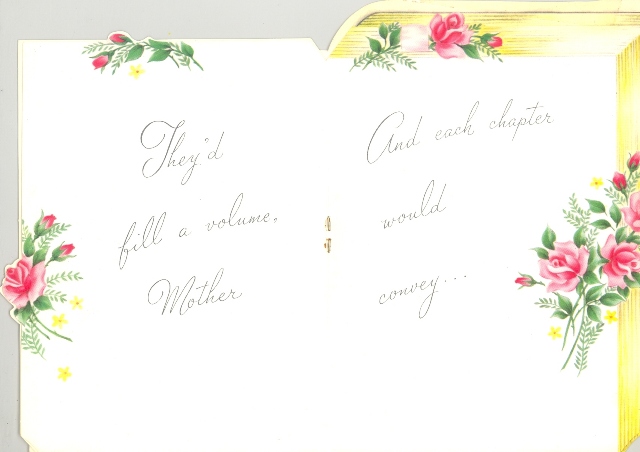 They'd
fill a volume,
Mother
And each chapter
would
convey...